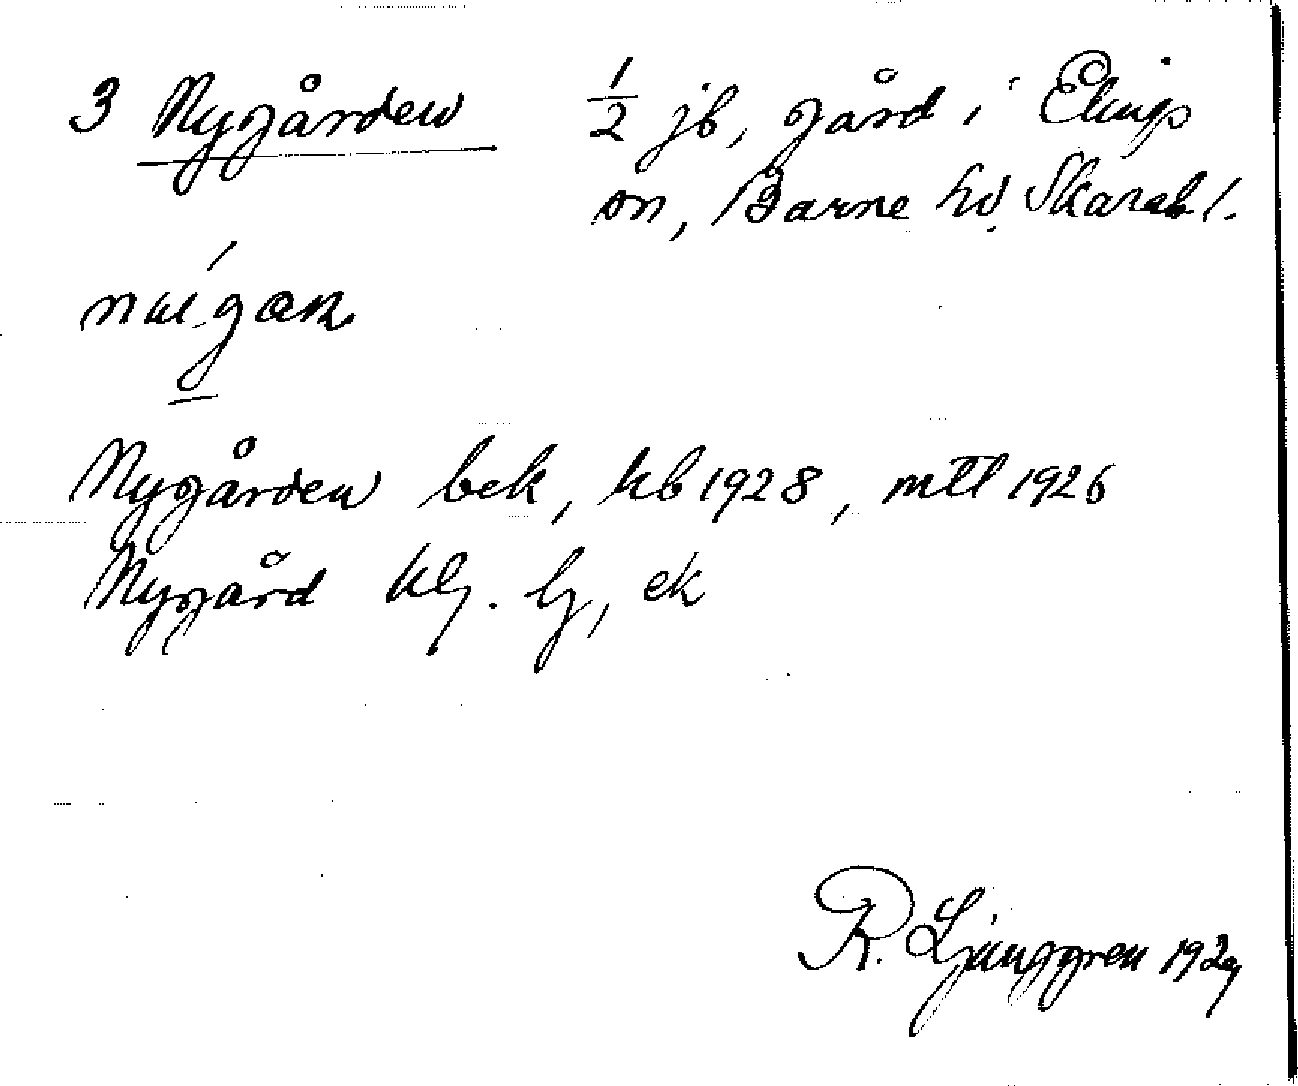 3 Nygården 1/2 jb, gård i Elings
sn, Barne hd. Skarab l.
Nygården bek, kb 1928, mtl 1926
Nygård klg. lg, ek
R. Ljunggren 1929